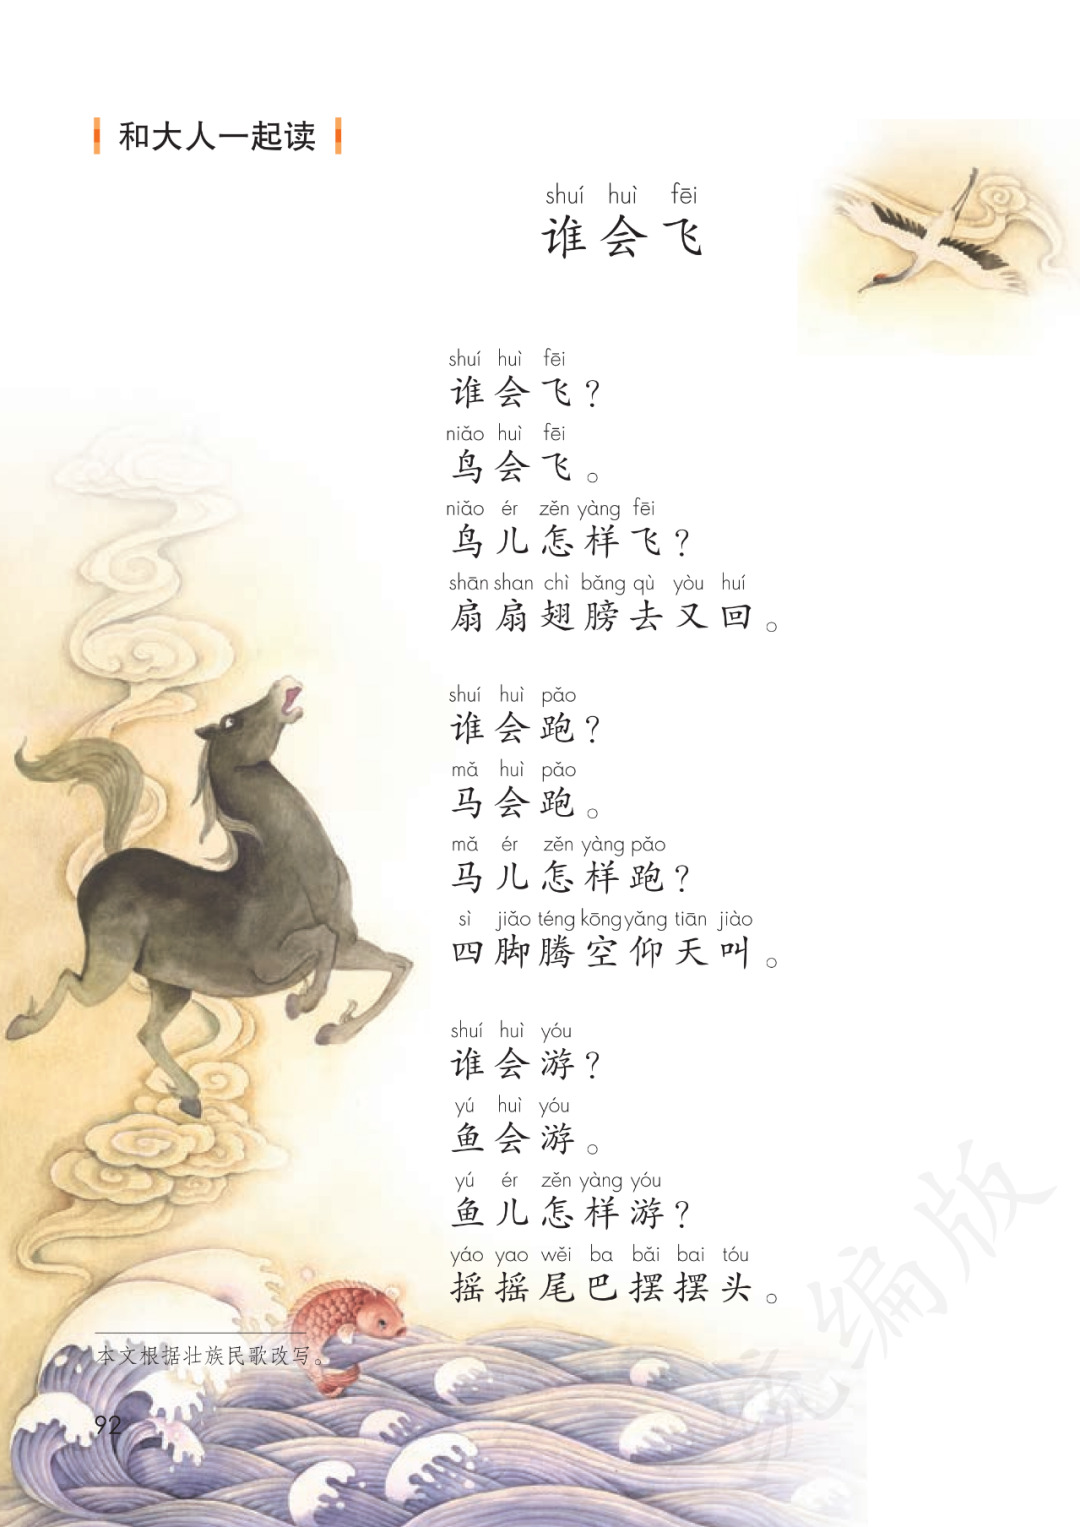 和大人一起读
shuí huì fēi
谁会飞
shuí huì fēi
谁会飞？
niǎo huì fēi
鸟会飞。
niǎo ér zěn yàng fēi
鸟儿怎样飞？
shān shan chì bǎng qù yòu huí
扇扇翅膀去又回。
shuí huì pǎo
谁会跑？
mǎ huì pǎo
马会跑。
mǎ ér zěn yàng pǎo
马儿怎样跑？
sì jiǎo téng kōng yǎng tiān jiào
四脚腾空仰天叫。
shuí huì yóu
谁会游？
yú huì yóu
鱼会游。
yú ér zěn yàng yóu
鱼儿怎样游？
yáo yao wěi ba bǎi bai tóu
摇摇尾巴摆摆头。
本文根据壮族民歌改写。
92
统编版